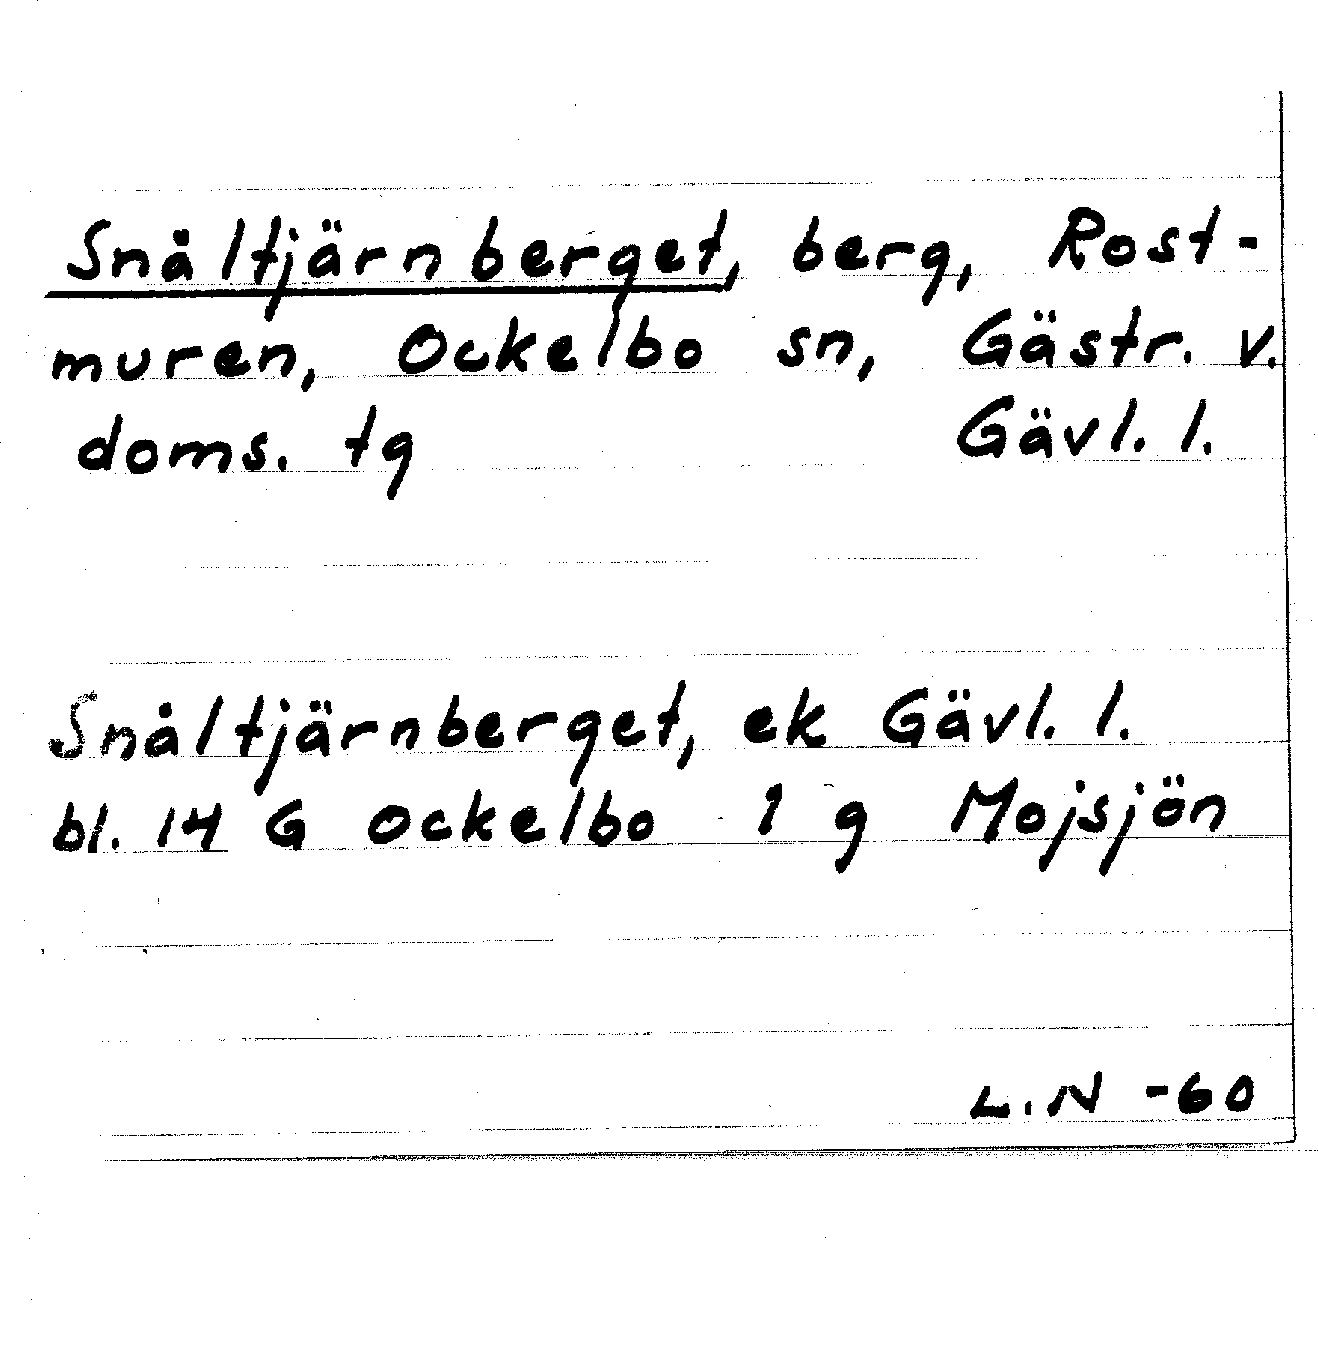 Snåltjärnberget, berg, Rost-
muren, Ockelbo sn, Gästr. v.
doms. tg Gävl. l.
Snåltjärnberget, ek Gävl. l.
bl. 14 G Ockelbo 1 g Mojsjön
L.N -60